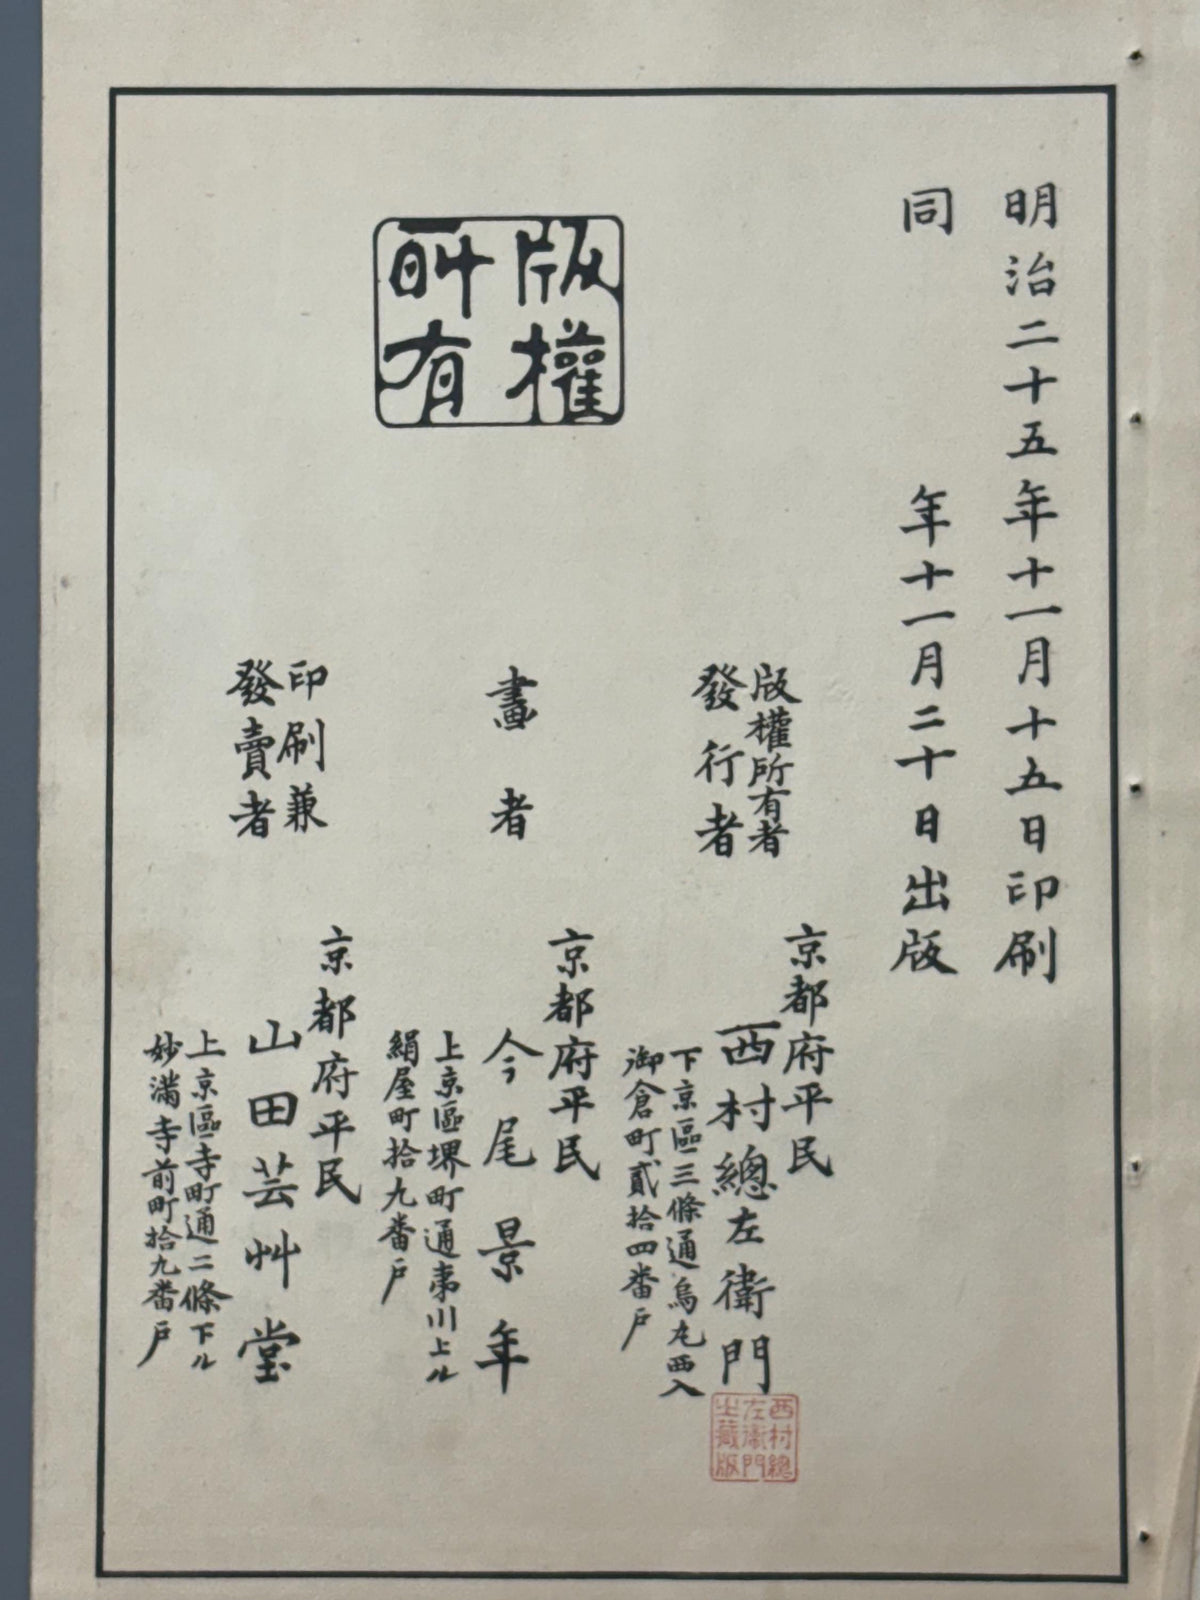 明治二十五年十一月十五日印刷
同年十一月二十日出版
版權所有者
發行者
京都府平民
西村總左衛門
下京區三條通烏丸西入
御倉町貳拾四番戶
西村總左衛門之藏版
版權所有
畫者
京都府平民
今尾景年
上京區堺町通夷川上ル
絹屋町拾九番戶
印刷兼
發賣者
京都府平民
山田芸艸堂
上京區寺町通二條下ル
妙滿寺前町拾九番戶